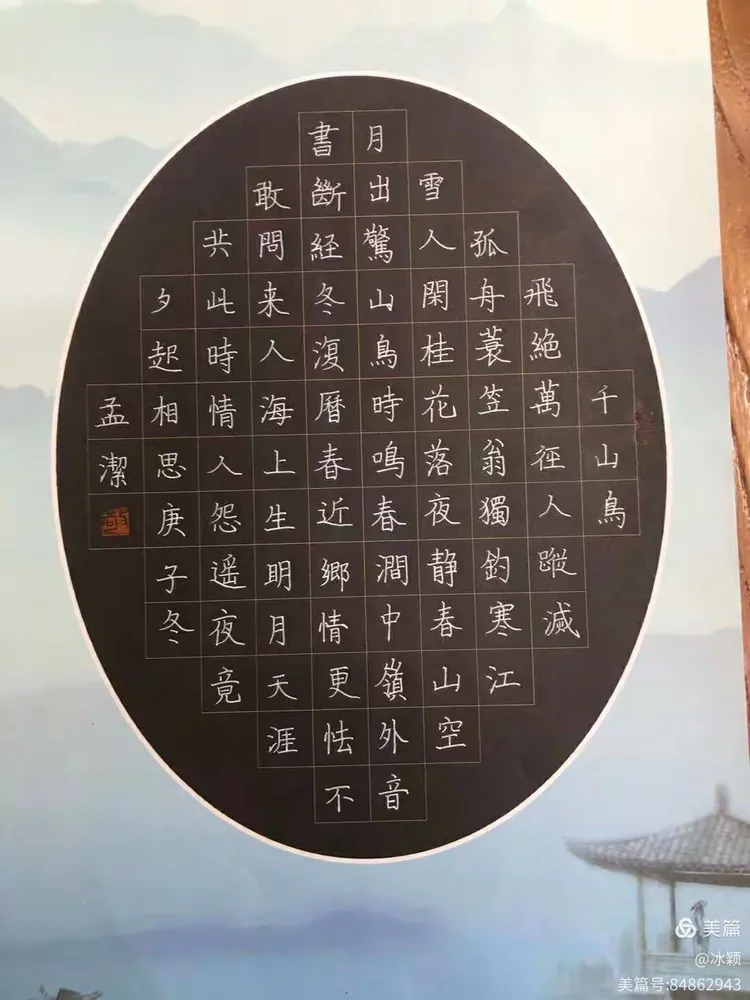 千山鳥
飛絶萬徑人蹤滅
孤舟蓑笠翁獨釣寒江
雪人閑桂花落夜静春山空
月出驚山鳥時鳴春澗中嶺外音
書斷経冬復曆春近鄉情更怯不
敢問来人海上生明月天涯
共此時情人怨遥夜竟
夕起相思庚子冬
孟潔
美篇
@冰颖
美篇号:84862943